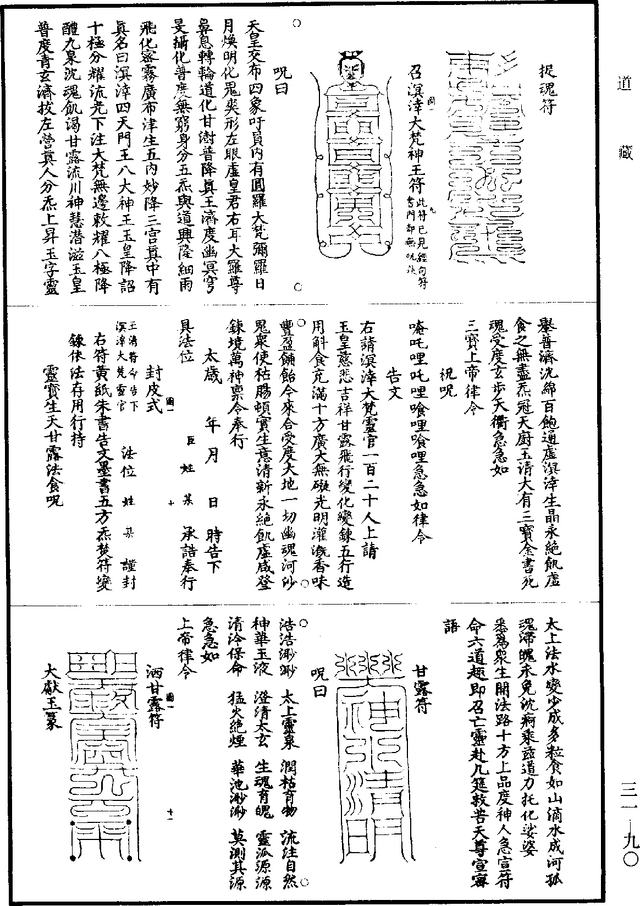 道藏
捉魂符
召溟涬大梵神王符
此符已見經句符
書門部無
呪曰
天皇交布四象吁員內有圓羅大梵彌羅日
月煥明化晃奕形左眼虛皇君右耳大羅尊
鼻息轉輪道化甘澍普降眞王濟度幽冥穹
旻攝化普度無窮身分五炁與道興隆細雨
飛化密霧廣布津生五內妙降三宮眞中有
眞名曰溟涬四天門王八大神王玉皇降詔
十極分耀流光下注大梵無邊敕耀八極降
醴九泉沈魂飢渴甘露流川神慧潛滋玉皇
普度青玄濟拔左營眞人分炁上昇玉字靈
舉普濟沈綿百飽通虛溟涬生晶永絕飢虛
食之無盡炁冠天廚玉請大有三寶金書死
魂受度玄步天衢急急如
三寶上帝律令
祝呪
唵吒哩吒哩㗸哩㗸哩急急如律令
告文
右請溟涬大梵靈官一百二十人上請
玉皇慈悲吉祥甘露飛行變化變鍊五行造
用斛食充滿十方廣大無礙光明灌溉香味
豐盈餔飴今來合受度大地一切幽魂河沙
鬼眾使枯腸頓實生意清新永絕飢虛咸登
鍊境萬神稟令奉行
太歲 年 月 日 時告下
具法位 臣 姓 某 承誥奉行
封皮式
玉清符命告下
溟涬大梵靈官 法位 姓 某 謹封
右符黃紙朱書告文墨書五方炁焚符變
鍊依法存用行持
靈寶生天甘露法食呪
太上法水變少成多粒食如山滴水成河孤
魂滯魄永免沈痾乘茲道力托化娑婆
悉爲衆生開法路十方上品度神人急宣符
命六道趣即召亡靈赴几筵救苦天尊宣密
語
甘露符
呪曰
浩浩渺渺 太上靈泉 潤枯育物 流注自然
神華玉液 澄清太玄 生魂育魄 靈派源源
清冷保命 猛火絕煙 華池渺渺 莫測其源
急急如
上帝律令
洒甘露符
大獻玉篆
三一—九〇